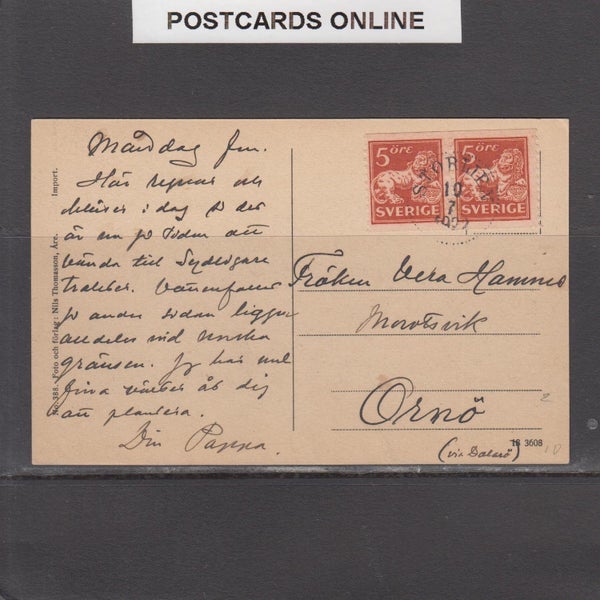 POSTCARDS ONLINE
Måndag fm.
Här regnar och
i dag
är en på sidan att
vända till Sydligare
trakter. Vattenfallet
på andra sidan ligger
vid norska
gränsen. Jg har nul
fina växter åt dig
att plantera.
Din Pappa.
No. 388. Foto och förlag: Nils Thomasson, Åre. Import.
5 ÖRE
SVERIGE
5 ÖRE
SVERIGE
STORLIEN
10
7
Fröken Vera Hammar
Ornö
(via Dalarö)
18 3608